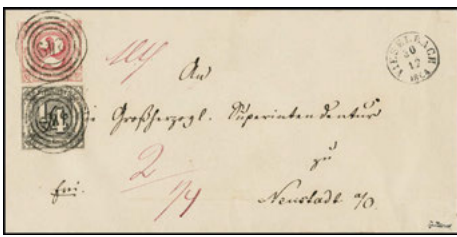 VIESELBACH
20
12
1854
An
die Großherzogl. Superintendentur
zu
Neustadt a/O.
frei.
2
1/4